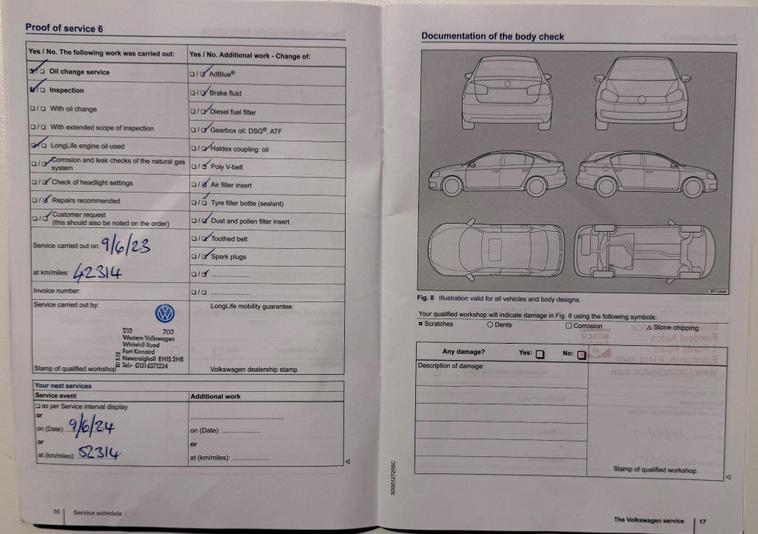 Proof of service 6
Yes / No. The following work was carried out:
Oil change service
Inspection
With oil change
With extended scope of inspection
LongLife engine oil used
Corrosion and leak checks of the natural gas
system
Check of headlight settings
Repairs recommended
Customer request
(this should also be noted on the order)
Service carried out on: 9/6/23
at km/miles: 42314
Invoice number:
Service carried out by:
210 700
Western Volkswagen
Whitehill Road
Fort Kinnaird
Newcraighall EH15 3HR
Tel:- 0131 6571234
Stamp of qualified workshop
Yes / No. Additional work - Change of:
AdBlue®
Brake fluid
Diesel fuel filter
Gearbox oil: DSG®, ATF
Haldex coupling: oil
Poly V-belt
Air filter insert
Tyre filler bottle (sealant)
Dust and pollen filter insert
Toothed belt
Spark plugs
LongLife mobility guarantee:
Volkswagen dealership stamp
Your next services
Service event
as per Service interval display
or
on (Date): 9/6/24
or
at (km/miles): 52314
Additional work
on (Date): ................
or
at (km/miles): ................
16 | Service schedule
Documentation of the body check
Fig. 8 Illustration valid for all vehicles and body designs.
Your qualified workshop will indicate damage in Fig. 8 using the following symbols:
× Scratches ○ Dents □ Corrosion △ Stone chipping
Any damage? Yes: □ No: □
Description of damage:
Stamp of qualified workshop
The Volkswagen service | 17